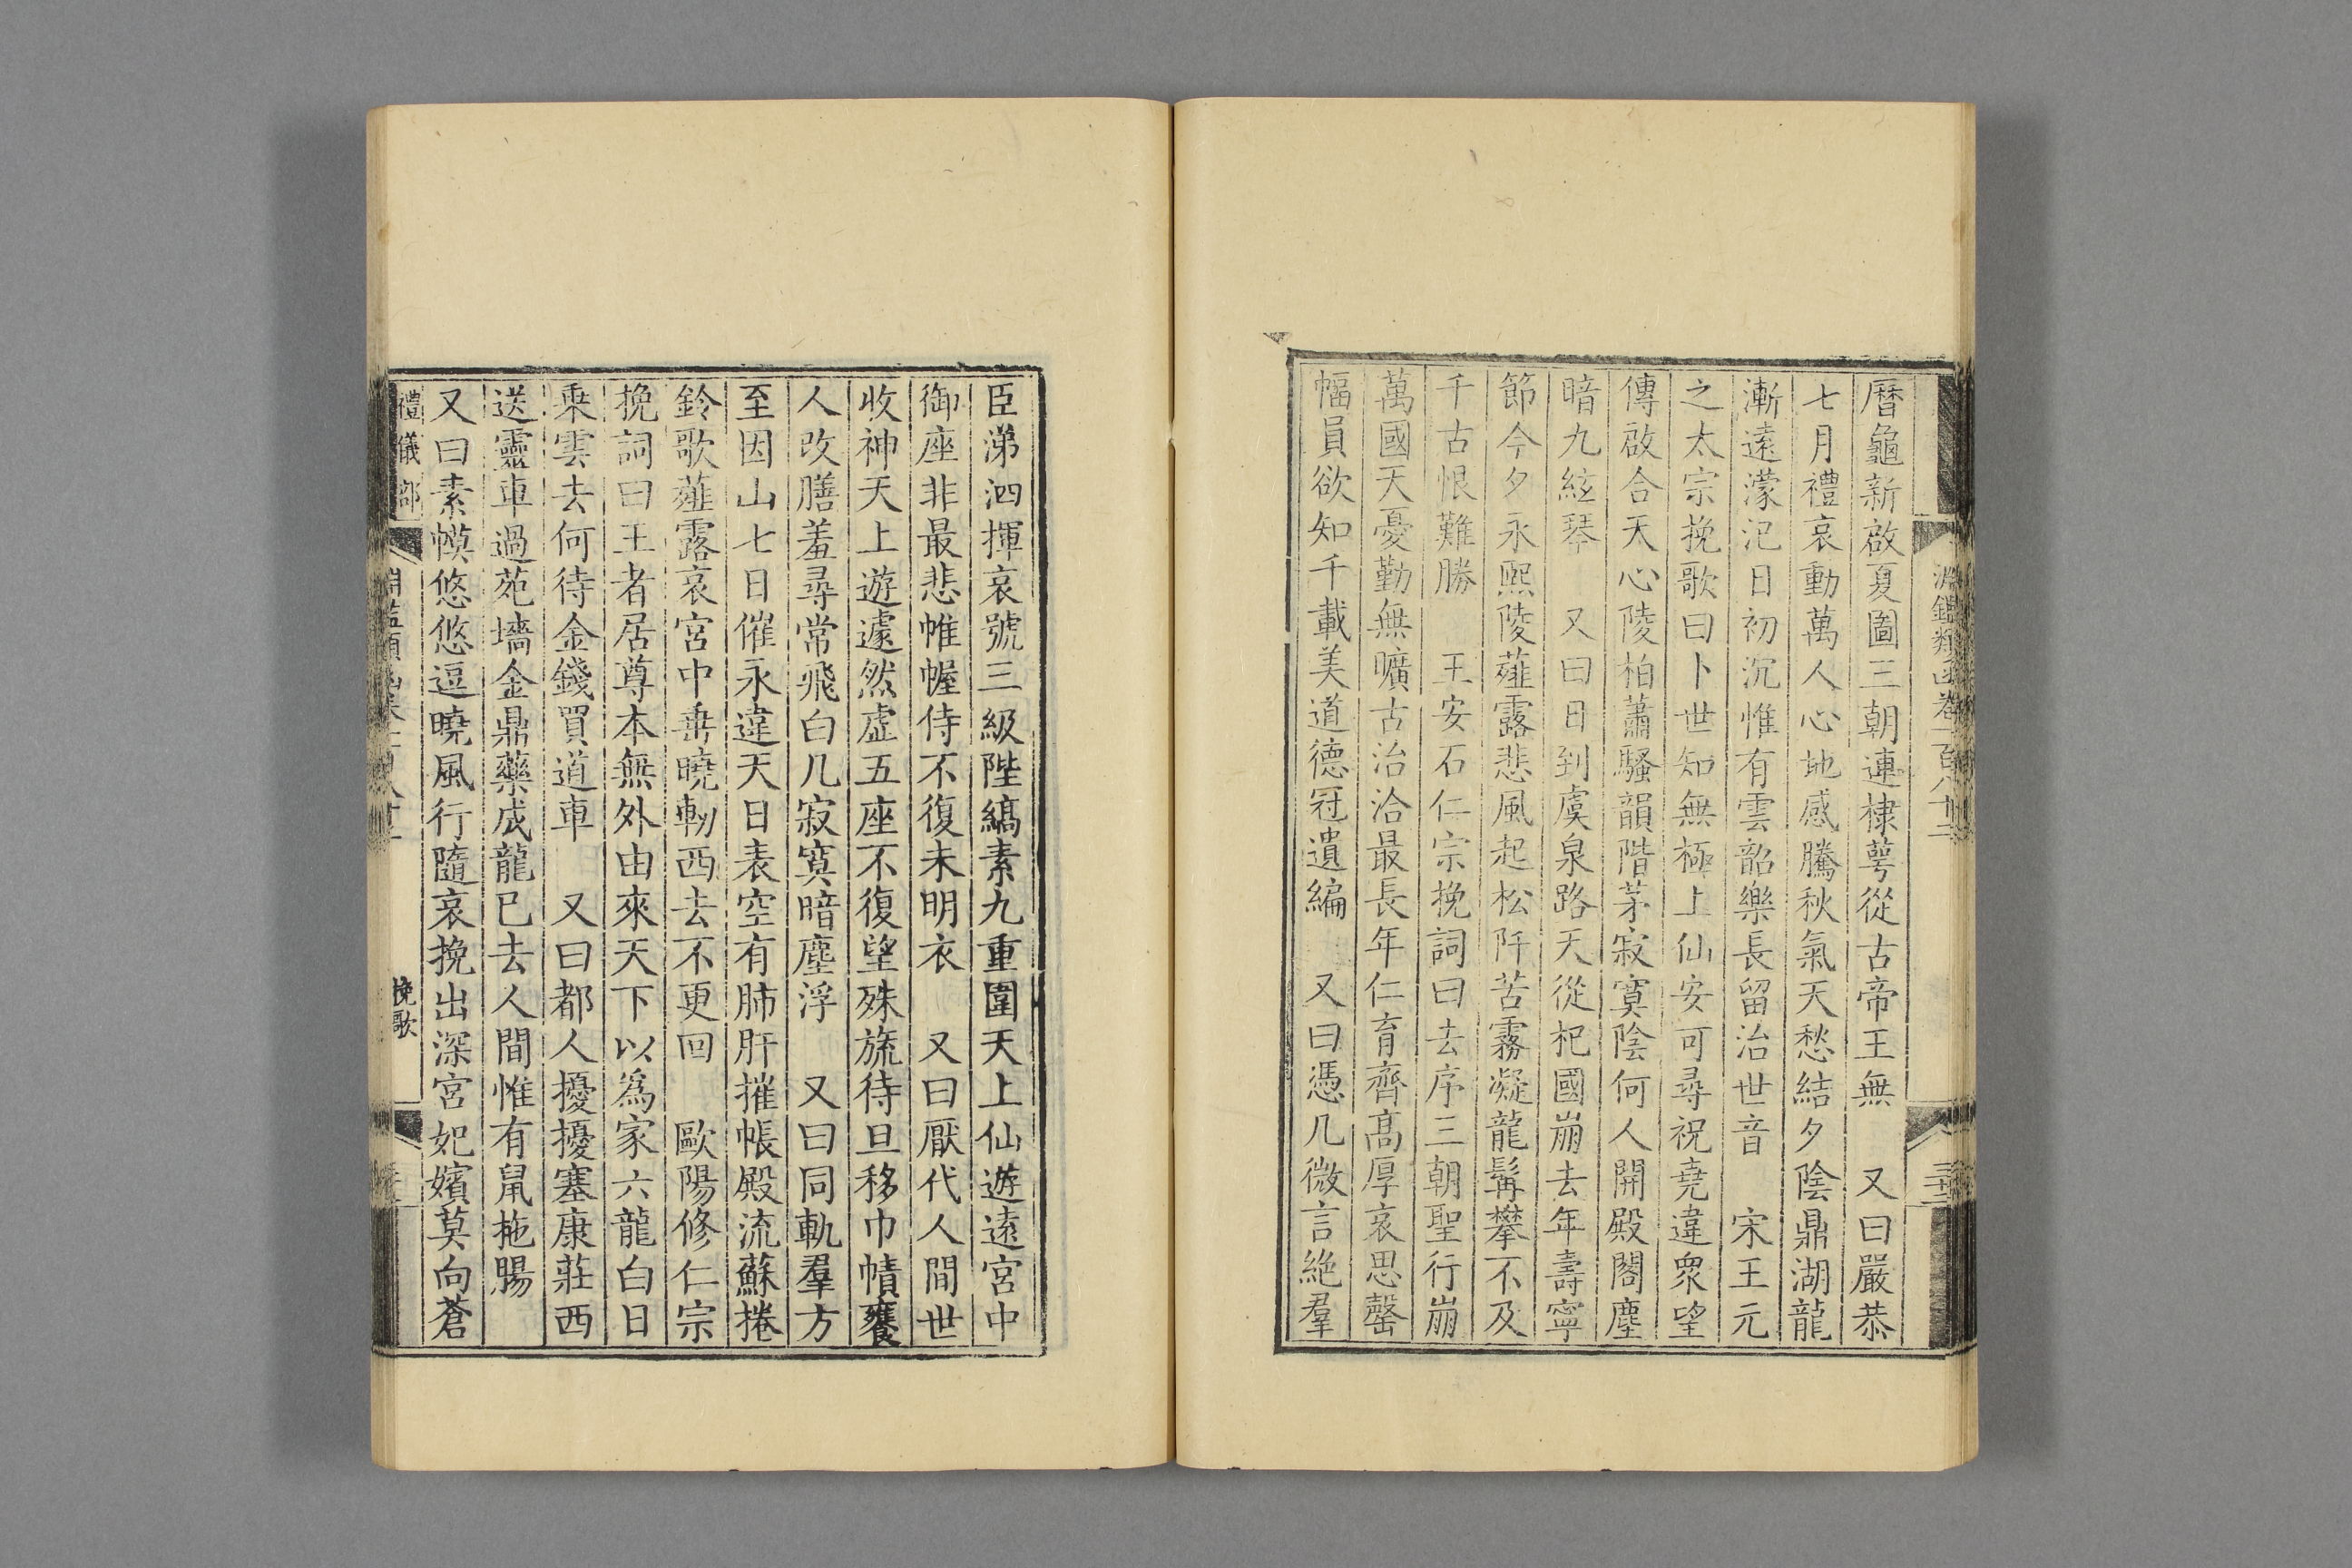 淵鑑類函卷一百八十二
曆龜新啟夏圖三朝連棣萼從古帝王無　又曰嚴恭
七月禮哀動萬人心地感騰秋氣天愁結夕陰鼎湖龍
漸遠濛汜日初沉惟有雲韶樂長留治世音　宋王元
之太宗挽歌曰卜世知無極上仙安可尋祝堯違眾望
傳啟合天心陵柏蕭騷韻階茅寂寞陰何人開殿閣塵
暗九絃琴　又曰日到虞泉路天從杞國崩去年壽寧
節今夕永熙陵薤露悲風起松阡苦霧凝龍髯攀不及
千古恨難勝　王安石仁宗挽詞曰去序三朝聖行崩
萬國天憂勤無曠古治洽最長年仁育齊高厚哀思罄
幅員欲知千載美道德冠遺編　又曰憑几微言絕羣
臣涕泗揮哀號三級陛縞素九重圍天上仙遊遠宮中
御座非最悲帷幄侍不復未明衣　又曰厭代人間世
收神天上遊遽然虛五座不復望殊旒待旦移巾幘饔
人改膳羞尋常飛白几寂寞暗塵浮　又曰同軌羣方
至因山七日催永違天日表空有肺肝摧帳殿流蘇捲
鈴歌薤露哀宮中垂曉軔西去不更回　歐陽修仁宗
挽詞曰王者居尊本無外由來天下以爲家六龍白日
乘雲去何待金錢買道車　又曰都人擾擾塞康莊西
送靈車過苑墻金鼎藥成龍已去人間惟有鼠拖腸
又曰素幙悠悠逗曉風行隨哀挽出深宮妃嬪莫向蒼
禮儀部
挽歌